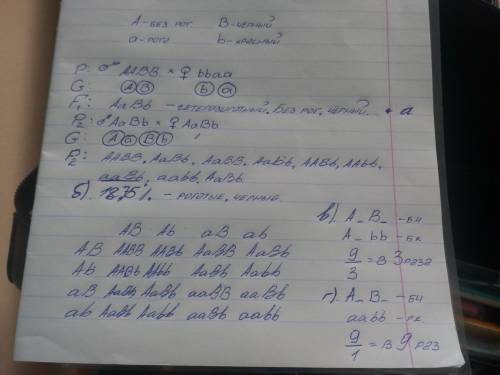 А - БЕЗ РОГ. В - ЧЕРНЫЙ
а - РОГИ b - КРАСНЫЙ
P: ♂ AABB × ♀ bbaa
G: A B b a
F1: AaBb - ГЕТЕРОЗИГОТНЫЙ, БЕЗ РОГ, ЧЕРНЫЙ. а
P2: ♂ AaBb × ♀ AaBb
G: A a B b
F2: AABB, AaBb, AaBB, AaBb, AABb, AAbb,
aaBb, aabb, AaBb.
б) 18,75% - РОГАТЫЕ, ЧЕРНЫЕ
AB Ab aB ab
AB AABB AABb AaBB AaBb
Ab AABb AAbb AaBb Aabb
aB AaBB AaBb aaBB aaBb
ab AaBb Aabb aaBb aabb
в) A_ B_ - БЧ
A_ bb - БК
9/3 = В 3 РАЗА
г) A_ B_ - БЧ
aabb - РК
9/1 = В 9 РАЗ